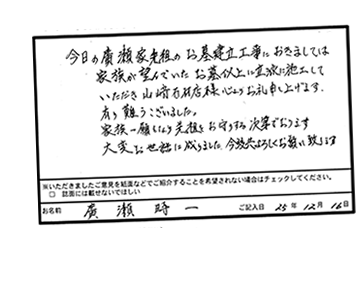 今日の廣瀬家先祖のお墓建立工事におきましては
家族が望んでいたお墓以上に立派に施工して
いただき山崎石材店様心よりお礼申し上げます.
有り難うございました。
家族一願となり先祖をお守りする次第であります
大変お世話に成りました 今後共よろしくお願い致します
※いただきましたご意見を紙面などでご紹介することを希望されない場合はチェックしてください。
□ 誌面には載せないでほしい
お名前 廣瀬 時一 ご記入日 25年12月16日